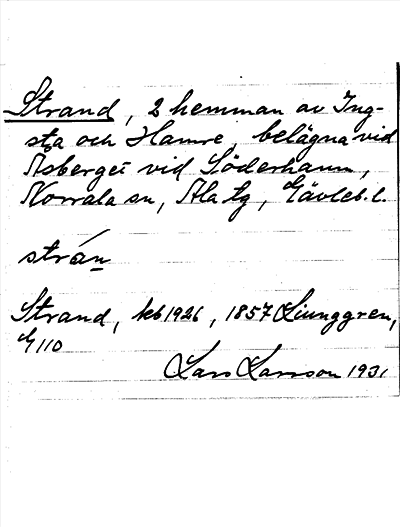 Strand, 2 hemman av Ing-
sta och Hamre, belägna vid
Åsberget vid Söderhamn,
Norrala sn, Ala tg, Gävleb. l.
strán
Strand, kb 1926, 1857 Ljunggren,
G 110
Lars Larsson 1931